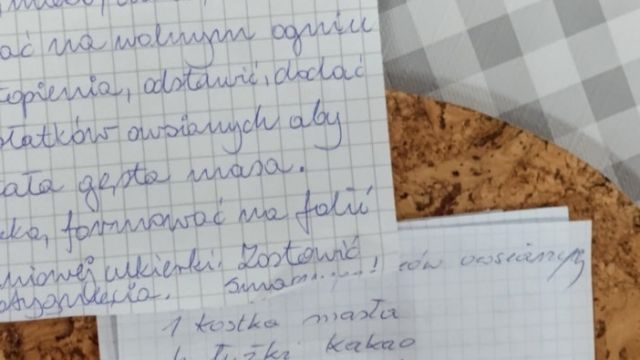 ać na wolnym ogniu
topienia, odstawić, dodać
płatków owsianych aby
ała gęsta masa.
formować na folii
niowej cukierki. Zostawić
owsianych
1 kostka masła
4 łyżki kakao